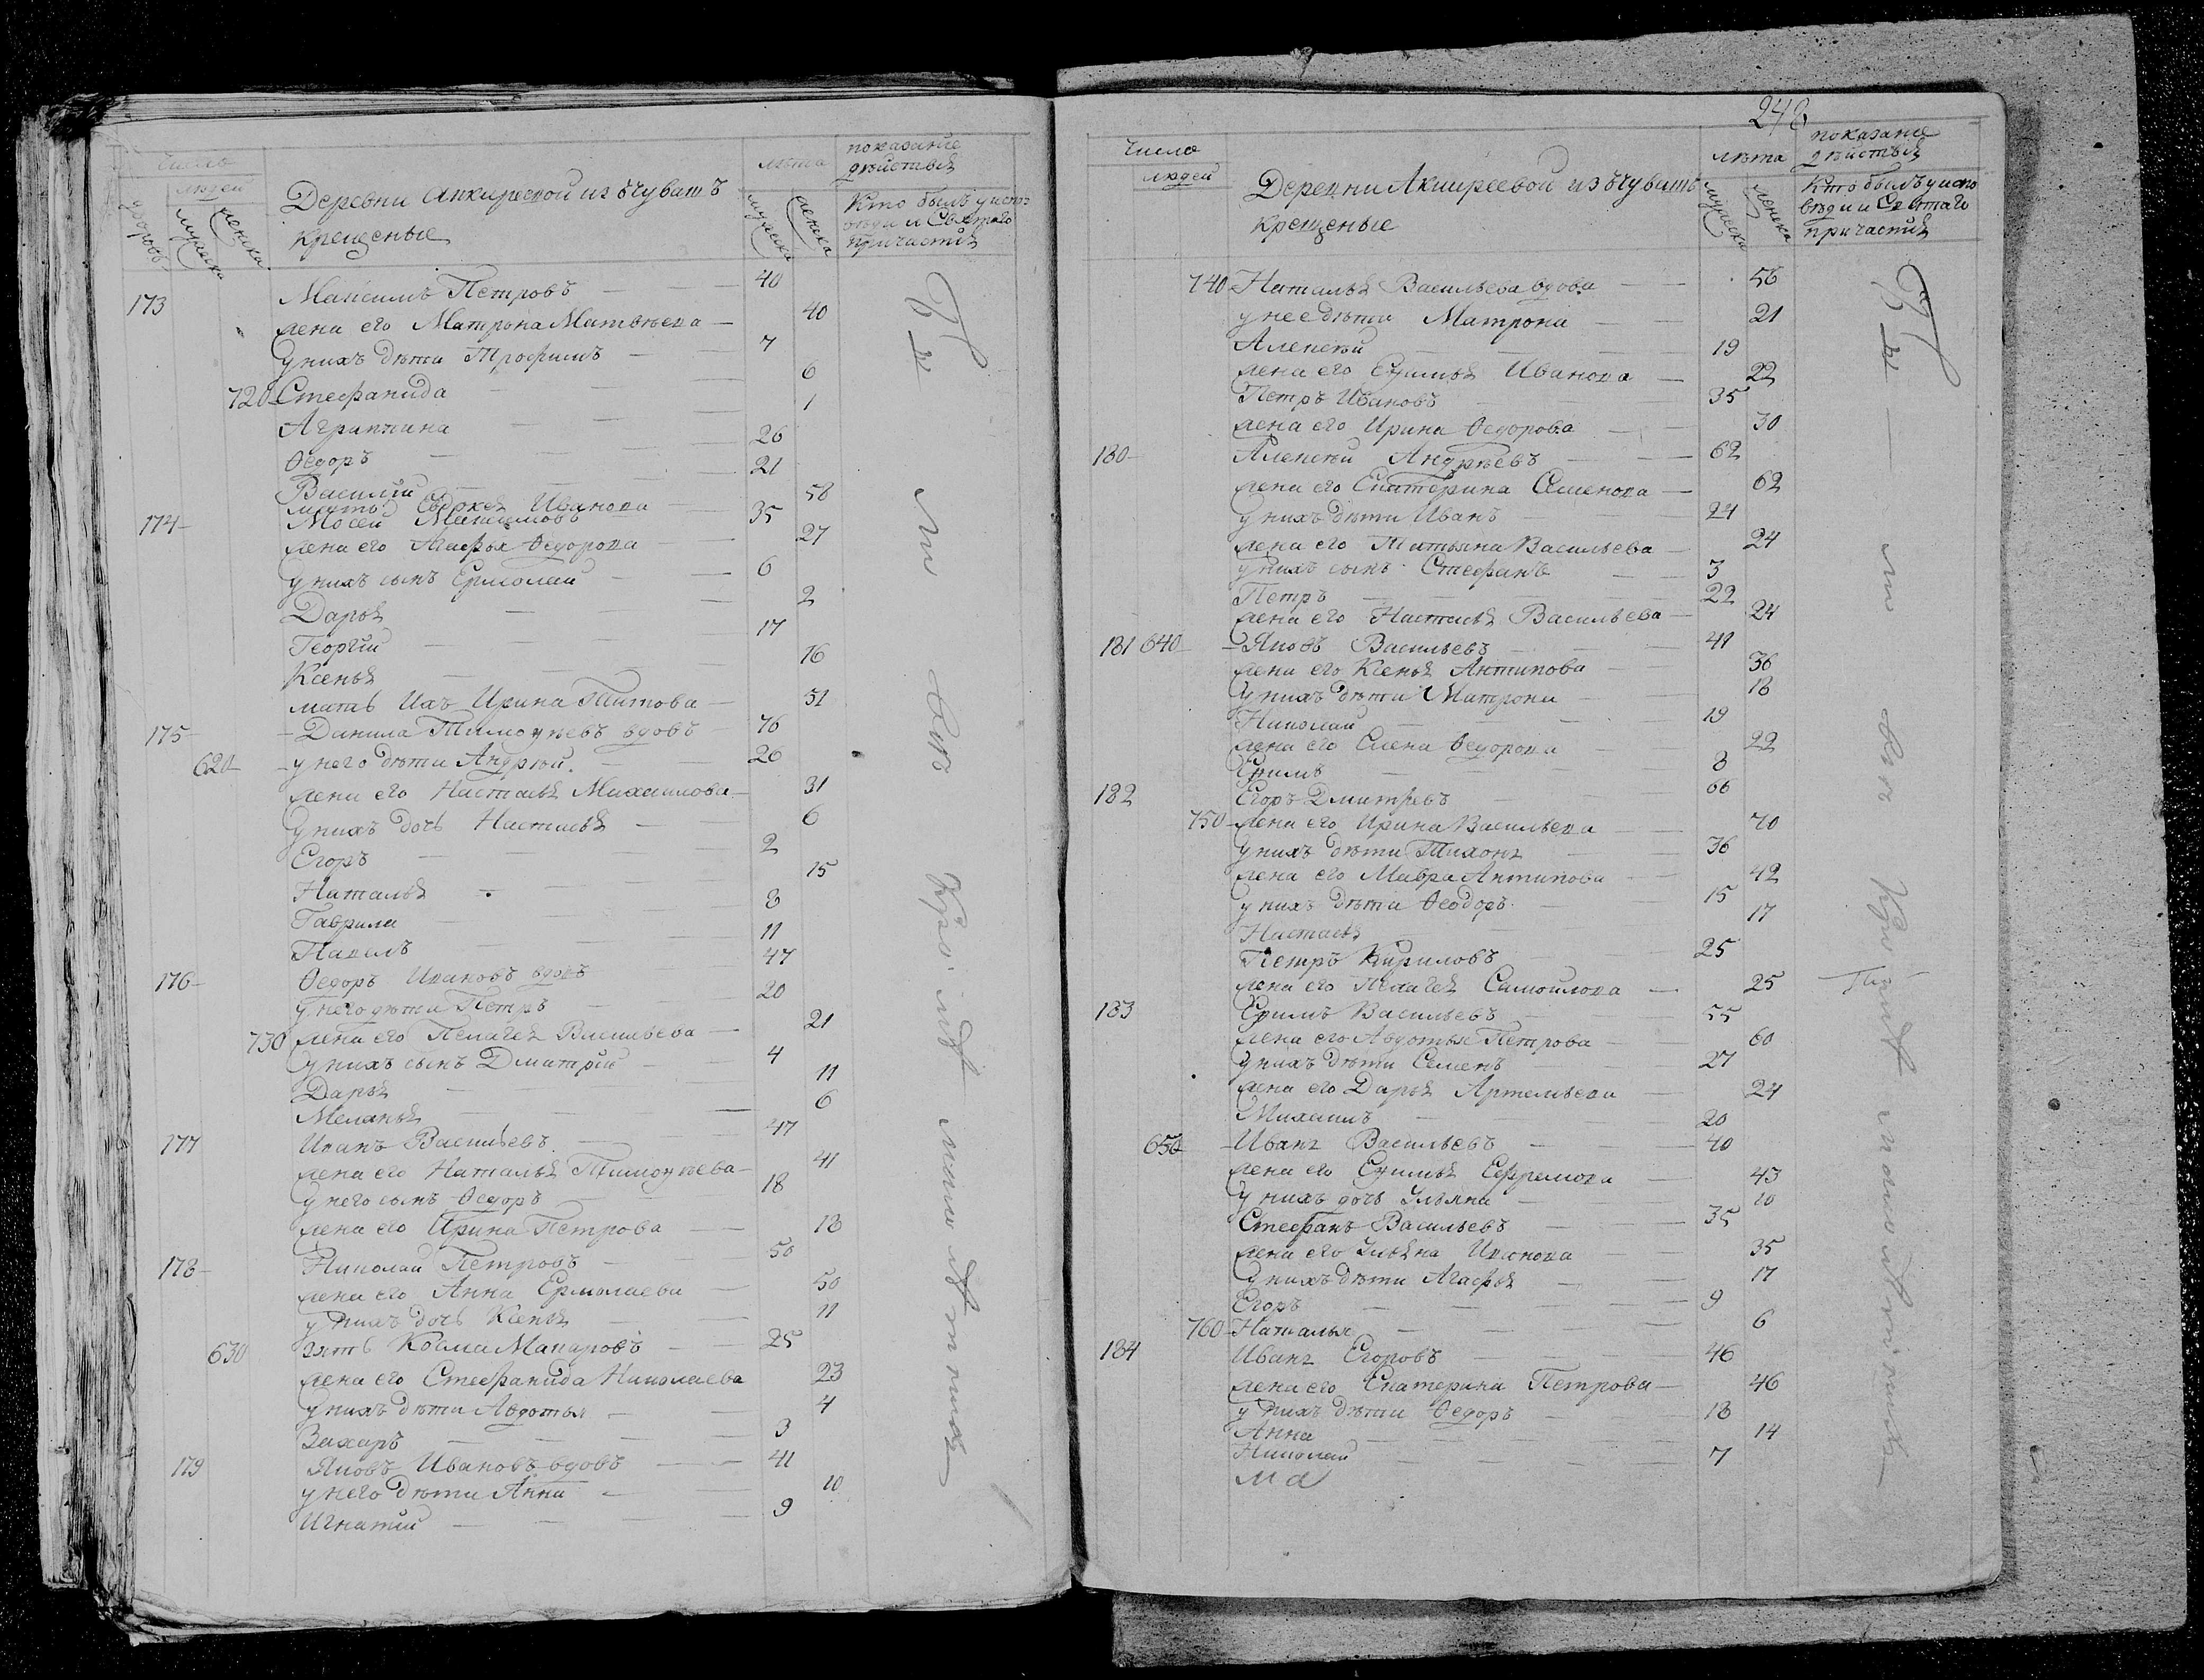 число
людей
дворовъ
мужеска
женска
Деревни Аккиреевой изъ Чувашъ
крещеные
лѣта
мужеска
женска
показание
дѣйствия
Кто былъ у испо
вѣди и Святаго
причастия
173 Максимъ Петровъ 40
жена его Матрона Матвѣева 40
у нихъ дѣти Трофимъ 7
720 Стефанида 6
Агрипина 1
Ѳедоръ 26
Василий 21
мать Евдокея Иванова 58
174 Мосей Максимовъ 35
жена его Агафья Ѳедорова 27
у нихъ сынъ Ермолай 6
Дарья 2
Георгий 17
Ксенья 16
мать Ихъ Ирина Титова 51
175 Данила Тимоѳеевъ вдовъ 76
620 у него дѣти Андрей 26
жена его Настасья Михаилова 31
у нихъ дочь Настасья 6
Егоръ 2
Наталья 15
Гаврила 8
Павелъ 11
176 Ѳедоръ Ивановъ вдовъ 47
у него дѣти Петръ 20
730 жена его Пелагея Васильева 21
у нихъ сынъ Дмитрий 4
Дарья 11
Меланья 6
177 Иванъ Васильевъ 47
жена его Наталья Тимоѳеева 41
у него сынъ Ѳедоръ 18
жена его Ирина Петрова 18
178 Николай Петровъ 50
жена его Анна Ермолаева 50
у нихъ дочь Ксенья 11
630 зять Косма Макаровъ 25
жена его Стефанида Николаева 23
у нихъ дѣти Авдотья 4
Захаръ 3
179 Яковъ Ивановъ вдовъ 41
у него дѣти Анна 10
Игнатий 9
248
число
людей
Деревни Аккиреевой изъ Чувашъ
крещеные
лѣта
мужеска
женска
показание
дѣйствия
Кто былъ у испо
вѣди и Святаго
причастия
740 Наталья Васильева вдова 56
у нее дѣти Матрона 21
Алексей 19
жена его Еѳимья Иванова 22
Петръ Ивановъ 35
жена его Ирина Ѳедорова 30
180 Алексей Андреевъ 62
жена его Екатерина Семенова 62
у нихъ дѣти Иванъ 24
жена его Татьяна Васильева 24
у нихъ сынъ Стефанъ 3
Петръ 22
жена его Настасья Васильева 24
181 640 Яковъ Васильевъ 41
жена его Ксенья Антипова 36
у нихъ дѣти Матрона 18
Николай 19
жена его Елена Ѳедорова 22
Еѳимъ 8
182 Егоръ Дмитревъ 66
750 жена его Ирина Васильева 70
у нихъ дѣти Тихонъ 36
жена его Мавра Антипова 42
у нихъ дѣти Ѳеодоръ 15
Настасья 17
Петръ Кириловъ 25
жена его Пелагея Самойлова 25
183 Еѳимъ Васильевъ 55
жена его Авдотья Петрова 60
у нихъ дѣти Семенъ 27
жена его Дарья Артемьева 24
Михаилъ 20
650 Иванъ Васильевъ 40
жена его Еѳимья Ефремова 43
у нихъ дочь Ульяна 10
Стефанъ Васильевъ 35
жена его Ульяна Иванова 35
у нихъ дѣти Агафья 17
Егоръ 9
760 Наталья 6
184 Иванъ Егоровъ 46
жена его Екатерина Петрова 46
у нихъ дѣти Ѳедоръ 18
Анна 14
Николай 7